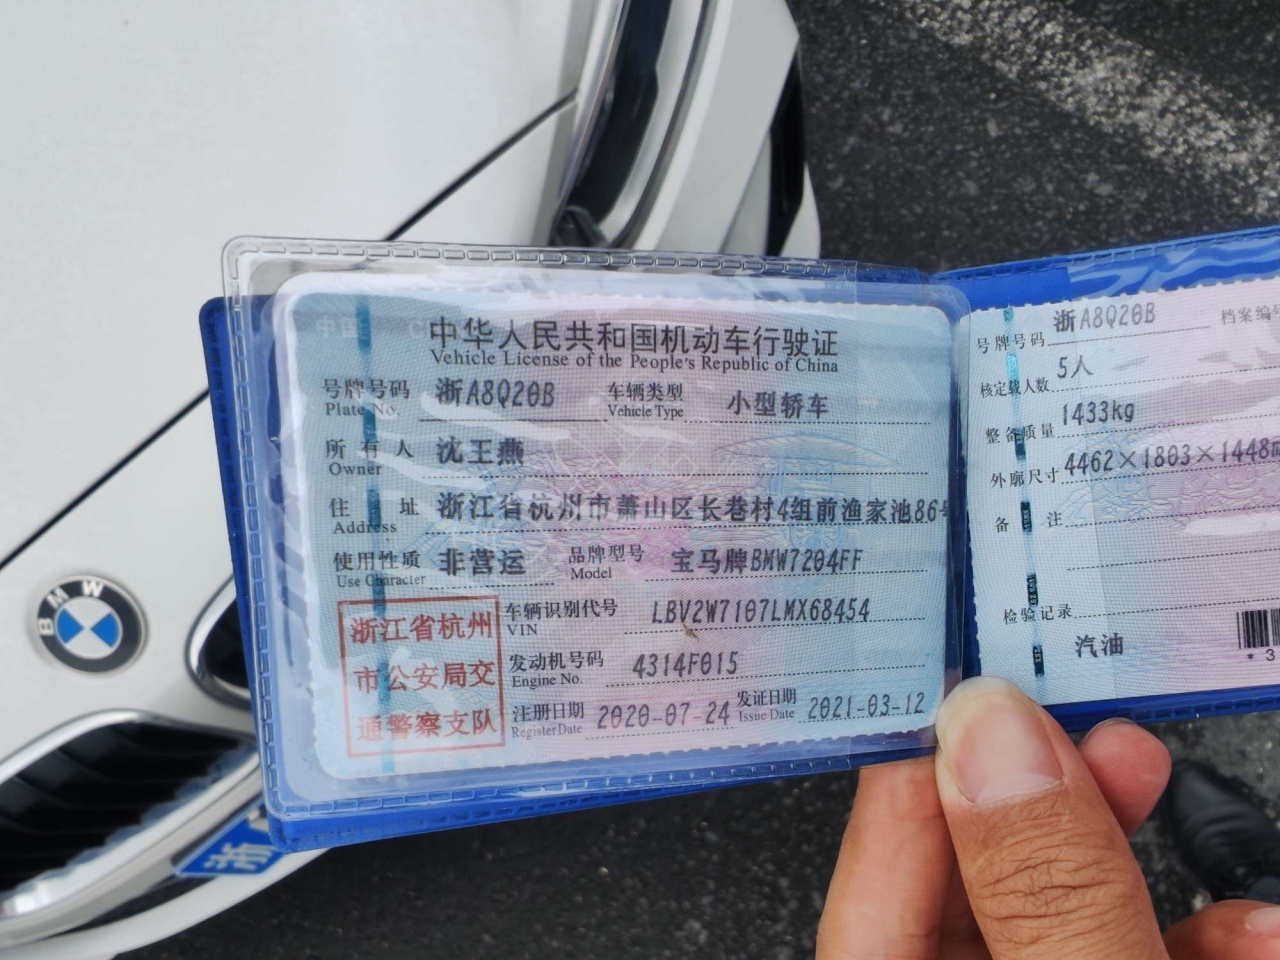 中华人民共和国机动车行驶证
Vehicle License of the People's Republic of China
号牌号码 浙A8Q20B 车辆类型 小型轿车
Plate No. Vehicle Type
所有人 沈王燕
Owner
住址 浙江省杭州市萧山区长巷村4组前渔家池86号
Address
使用性质 非营运 品牌型号 宝马牌BMW7204FF
Use Character Model
浙江省杭州
市公安局交
通警察支队
车辆识别代号 LBV2W7107LMX68454
VIN
发动机号码 4314F015
Engine No.
注册日期 2020-07-24 发证日期 2021-03-12
Register Date Issue Date
号牌号码 浙A8Q20B 档案编号
核定载人数 5人
整备质量 1433kg
外廓尺寸 4462×1803×1448
备注
检验记录
汽油
* 3
BMW
浙